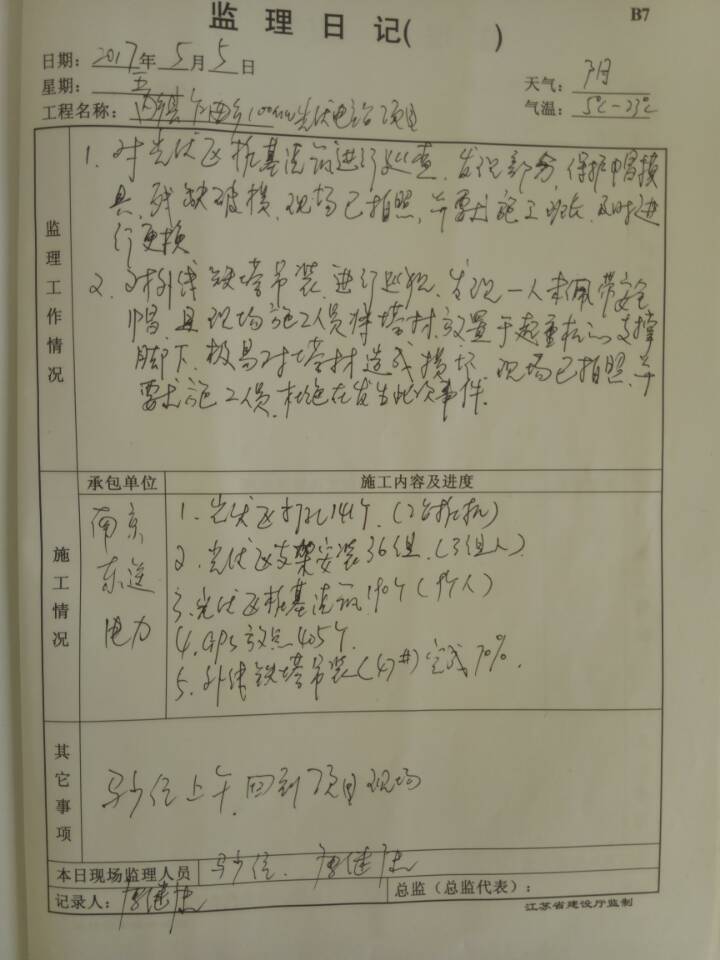 监理日记( )
B7
日期: 2017年5月5日
星期: 五
天气: 阴
工程名称: 乡100MW光伏电站项目
气温: 5℃-23℃
监理工作情况
1. 对光伏区桩基浇筑进行巡查, 发现部分, 保护帽模
具, 残缺破损, 现场已拍照, 并要求施工班长, 及时进
行更换
2. 对外线铁塔吊装, 进行巡视, 发现一人未佩带安全
帽, 且现场施工人员将塔材放置于起重机的支撑
脚下, 极易对塔材造成损坏, 现场已拍照, 并
要求施工人员, 杜绝在发生此次事件.
施工情况
承包单位
施工内容及进度
南京
东送
电力
1. 光伏区打孔141个. (2台桩机)
2. 光伏区支架安装36组. (3组人)
3. 光伏区桩基浇筑190个(9个人)
4. GPS放点405个.
5. 外线铁塔吊装(47#)完成70%.
其它事项
马少位上午, 回到项目现场
本日现场监理人员
马少位. 唐健
记录人: 唐健
总监(总监代表):
江苏省建设厅监制